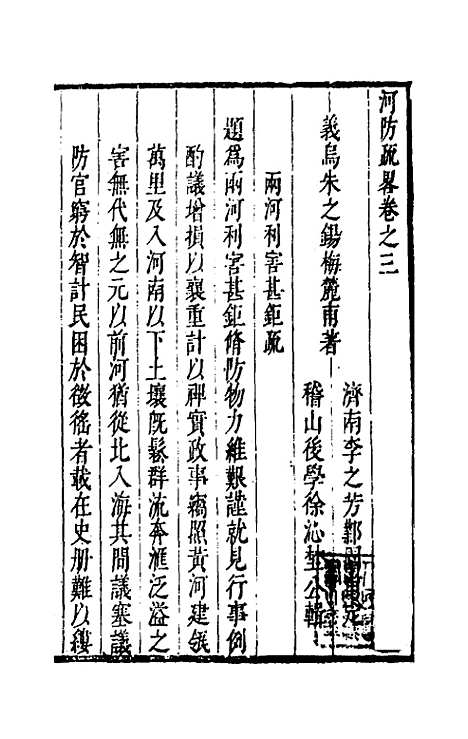 河防疏畧卷之三
濟南李之芳鄴園
義烏朱之錫梅麓甫著
稽山後學徐沁埜公輯
兩河利害甚鉅疏
題為兩河利害甚鉅脩防物力維艱謹就見行事例
酌議增損以襄重計以裨實政事竊照黃河建瓴
萬里及入河南以下土壤旣鬆群流奔滙泛溢之
害無代無之元以前河猶從北入海其間議塞議
防官窮於智計民困於徵徭者載在史册難以縷